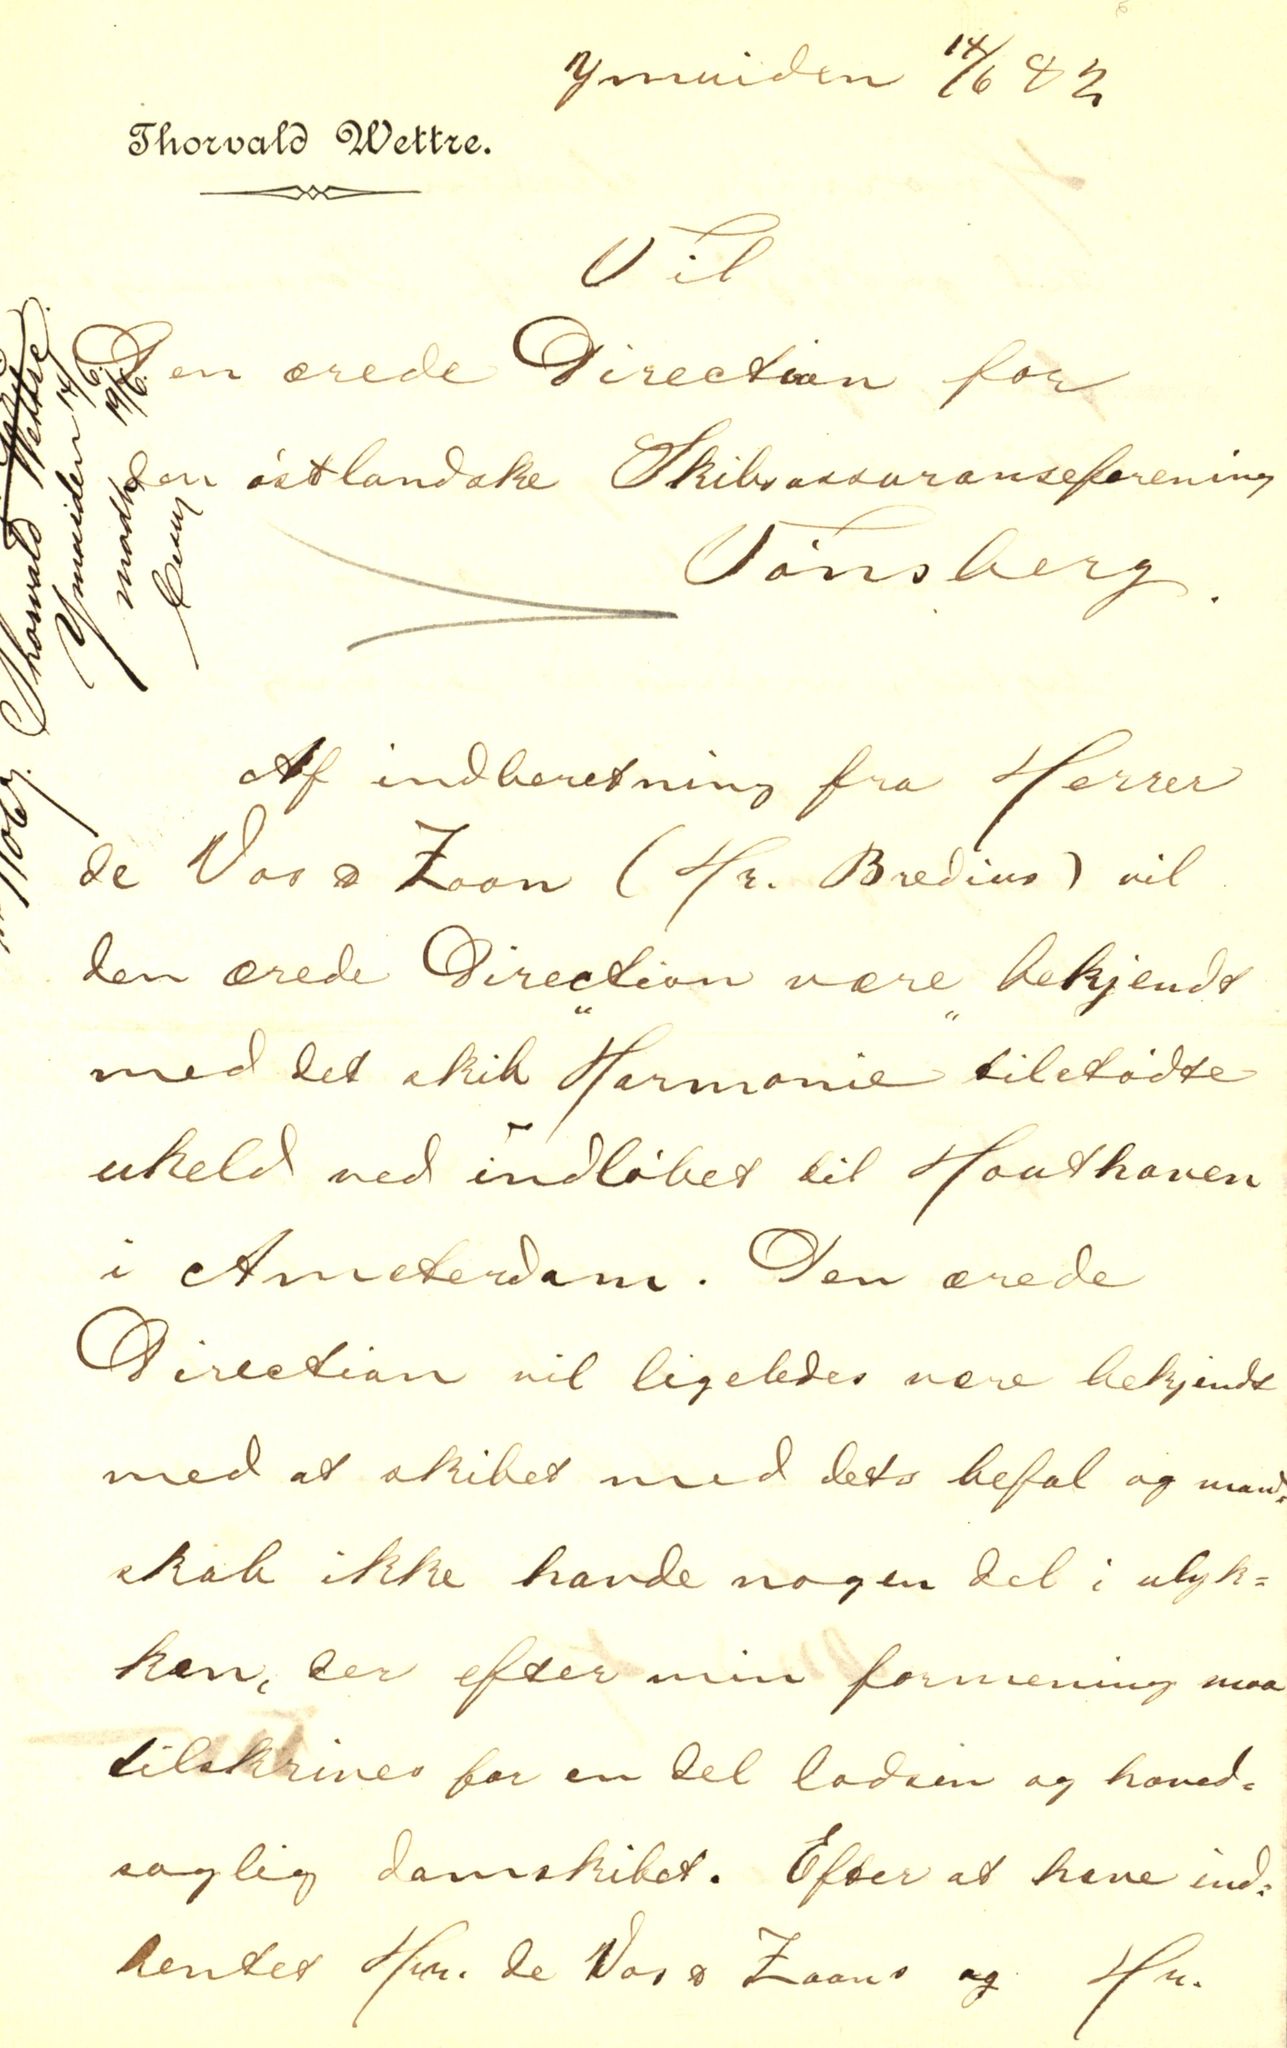 Ymuiden 14/6 82
Thorvald Wettre.
Til
Den ærede Direction for
den östlandske Skibsassuranseforening
Tönsberg.
Thorvald Wettre
Ymuiden 14/6
modt 19/6
Af indberetning fra Herrer
de Vos & Zoon (Hr. Bredius) vil
den ærede Direction være bekjendt
med det skib "Harmonie" tilstödte
uheld ved indlöbet til Houthaven
i Amsterdam. Den ærede
Direction vil ligeledes være bekjendt
med at skibet med dets befal og mand=
skab ikke havde nogen del i ulyk=
ken, der efter min formening maa
tilskrives for en del lodsen og hoved=
saglig damskibet. Efter at have ind=
hentet Hrr. de Vos & Zoons og Hr.